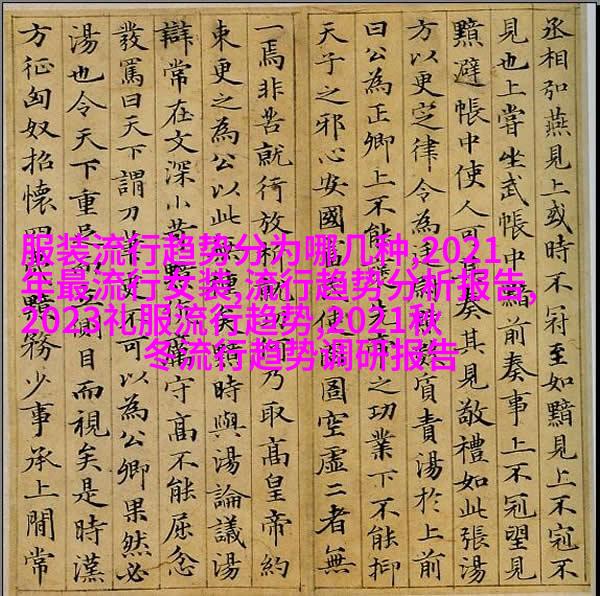 丞相弘燕見上或時不冠至如黯見上不冠不
見也上嘗坐武帳中黯前奏事上不冠望見
黯避帳中使人可其奏其見敬禮如此張湯
方以更定律令為質責湯於上前
曰公為正卿上不能之功業下不能抑
天子之邪心安國富民使囹圄空虛二者無
一焉非苦就行放析就乃取高皇帝約
東更之為公以此無種矣黯時與湯論議湯
辯常在文深小苛黯伉厲守高不能屈忿
發罵曰天下謂刀筆吏不可以為公卿果然必
湯也令天下重足側目而視矣是時漢
方征匈奴招懷四夷黯務少事承上間常
服装流行趋势分为哪几种,2021
年最流行女装,流行趋势分析报告,
2023礼服流行趋势,2021秋
冬流行趋势调研报告